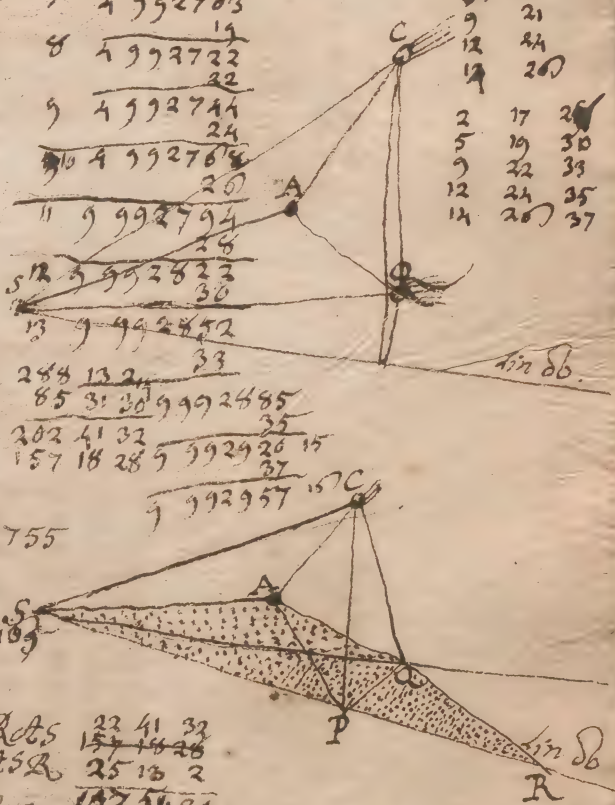 19
8 4 992722
22
9 4 992744
24
10 4 992768
26
11 9 992794
28
12 9 992822
30
13 9 992852
33
288 13 2
85 31 30 9 992885
35
202 41 32
157 18 28 9 992920 15
37
9 992957 15
755
9 21
12 24
26
2 17
5 19 30
9 22 33
12 24 35
14 26 37
C
A
S
lin δb.
C
A
S
Q
P
R
lin δb
RAS 22 41 32
157 18 28
ASR 25 13 2